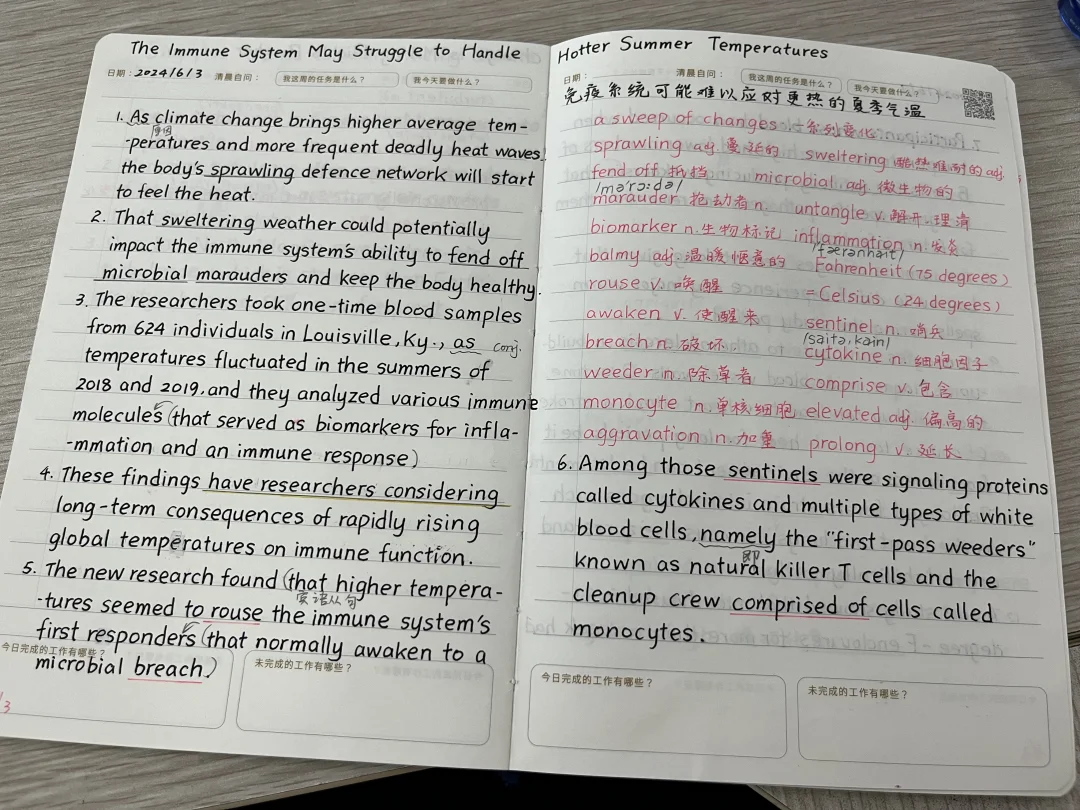 The Immune System May Struggle to Handle
日期：2024/6/3 清晨自问： 我这周的任务是什么？ 我今天要做什么？
1. As climate change brings higher average tem-
原因
-peratures and more frequent deadly heat waves,
the body's sprawling defence network will start
to feel the heat.
2. That sweltering weather could potentially
impact the immune system's ability to fend off
microbial marauders and keep the body healthy.
3. The researchers took one-time blood samples
from 624 individuals in Louisville, Ky., as conj.
temperatures fluctuated in the summers of
2018 and 2019, and they analyzed various immune
molecules (that served as biomarkers for infla-
-mmation and an immune response)
4. These findings have researchers considering
long-term consequences of rapidly rising
global temperatures on immune function.
5. The new research found (that higher tempera-
宾语从句
-tures seemed to rouse the immune system's
first responders (that normally awaken to a
今日完成的工作有哪些？ 未完成的工作有哪些？
microbial breach)
Hotter Summer Temperatures
日期： 清晨自问： 我这周的任务是什么？ 我今天要做什么？
免疫系统可能难以应对更热的夏季气温
a sweep of changes 一系列变化
sprawling adj. 蔓延的 sweltering 酷热难耐的 adj.
fend off 抵挡 microbial adj. 微生物的
/məˈrɔːdə/
marauder 抢劫者 n. untangle v. 解开,理清
biomarker n. 生物标记 inflammation n. 发炎
/ˈfærənhaɪt/
balmy adj. 温暖惬意的 Fahrenheit (75 degrees)
rouse v. 唤醒 = Celsius (24 degrees)
awaken v. 使醒来 sentinel n. 哨兵
/ˈsaɪtəˌkaɪn/
breach n. 破坏 cytokine n. 细胞因子
weeder n. 除草者 comprise v. 包含
monocyte n. 单核细胞 elevated adj. 偏高的
aggravation n. 加重 prolong v. 延长
6. Among those sentinels were signaling proteins
called cytokines and multiple types of white
blood cells, namely the "first-pass weeders"
即
known as natural killer T cells and the
cleanup crew comprised of cells called
monocytes.
今日完成的工作有哪些？ 未完成的工作有哪些？